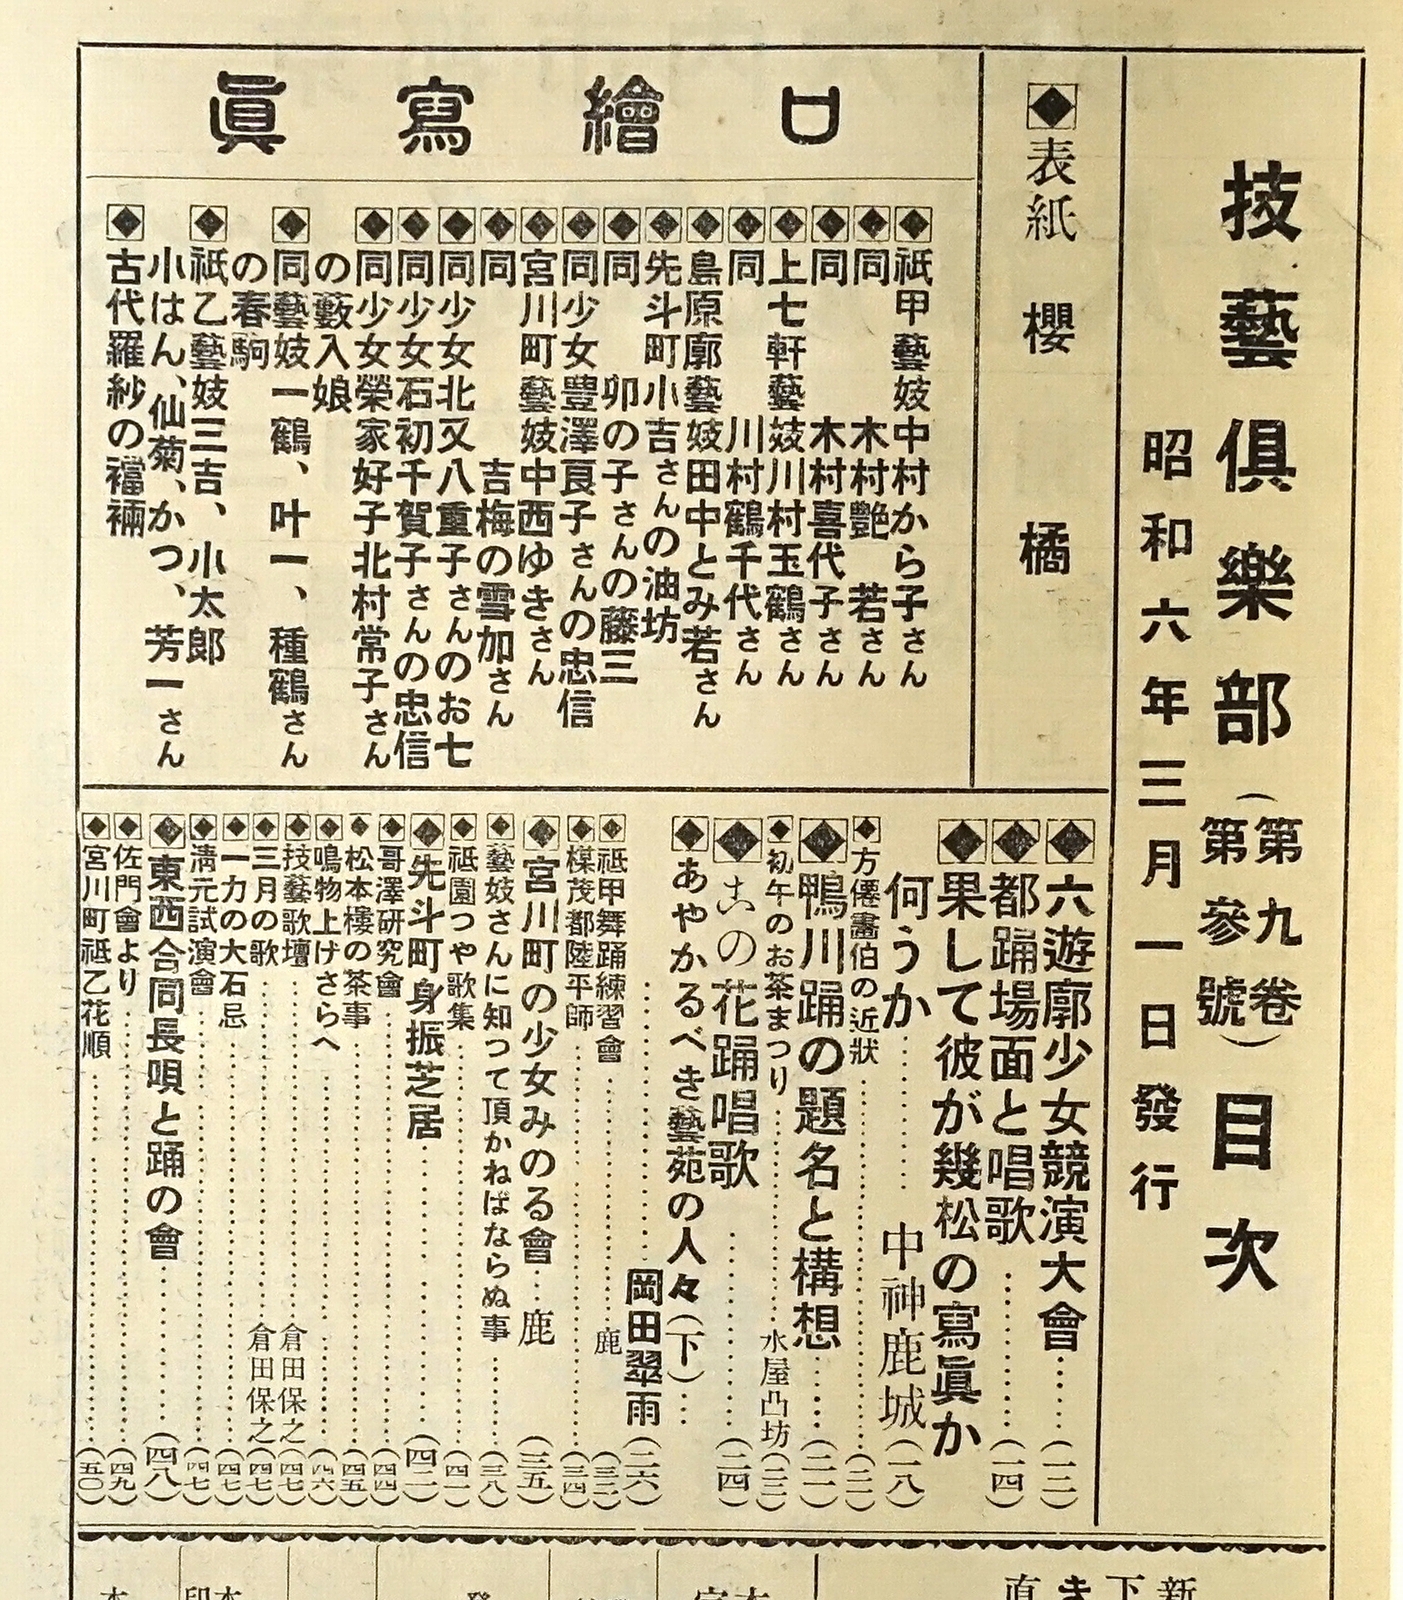 技藝倶樂部（第九卷第參號）目次
昭和六年三月一日發行
◆表紙 櫻 橘
口繪寫眞
◆祇甲藝妓中村から子さん
◆同 木村艷若さん
◆同 木村喜代子さん
◆上七軒藝妓川村玉鶴さん
◆同 川村鶴千代さん
◆島原廓藝妓田中とみ若さん
◆先斗町小吉さんの油坊
◆同 卯の子さんの藤三
◆同少女豊澤良子さんの忠信
◆宮川町藝妓中西ゆきさん
◆同 吉梅の雪加さん
◆同少女北又八重子さんのお七
◆同少女石初千賀子さんの忠信
◆同少女榮家好子北村常子さん
の藪入娘
◆同藝妓一鶴、叶一、種鶴さん
の春駒
◆祇乙藝妓三吉、小太郎
小はん、仙菊、かつ、芳一さん
◆古代羅紗の襠裲
◆六遊廓少女競演大會……（一二）
◆都踊場面と唱歌……（一四）
◆果して彼が幾松の寫眞か
何うか……中神鹿城（一八）
◆方僊畵伯の近狀……（二一）
◆鴨川踊の題名と構想……（二一）
◆初午のお茶まつり……水屋凸坊（二三）
◆この花踊唱歌……（二四）
◆あやかるべき藝苑の人々（下）……
……岡田翠雨（二六）
◆祗甲舞踊練習會……鹿（三三）
◆楳茂都陸平師……（三四）
◆宮川町の少女みのる會……鹿（三五）
◆藝妓さんに知つて頂かねばならぬ事……（三八）
◆祗園つや歌集……（四一）
◆先斗町身振芝居……（四二）
◆哥澤研究會……（四四）
◆松本樓の茶事……（四五）
◆鳴物上げさらへ……（四六）
◆技藝歌壇……倉田保之（四七）
◆三月の歌……倉田保之（四七）
◆一力の大石忌……（四七）
◆清元試演會……（四七）
◆東西合同長唄と踊の會……（四八）
◆佐門會より……（四九）
◆宮川町祗乙花順……（五〇）